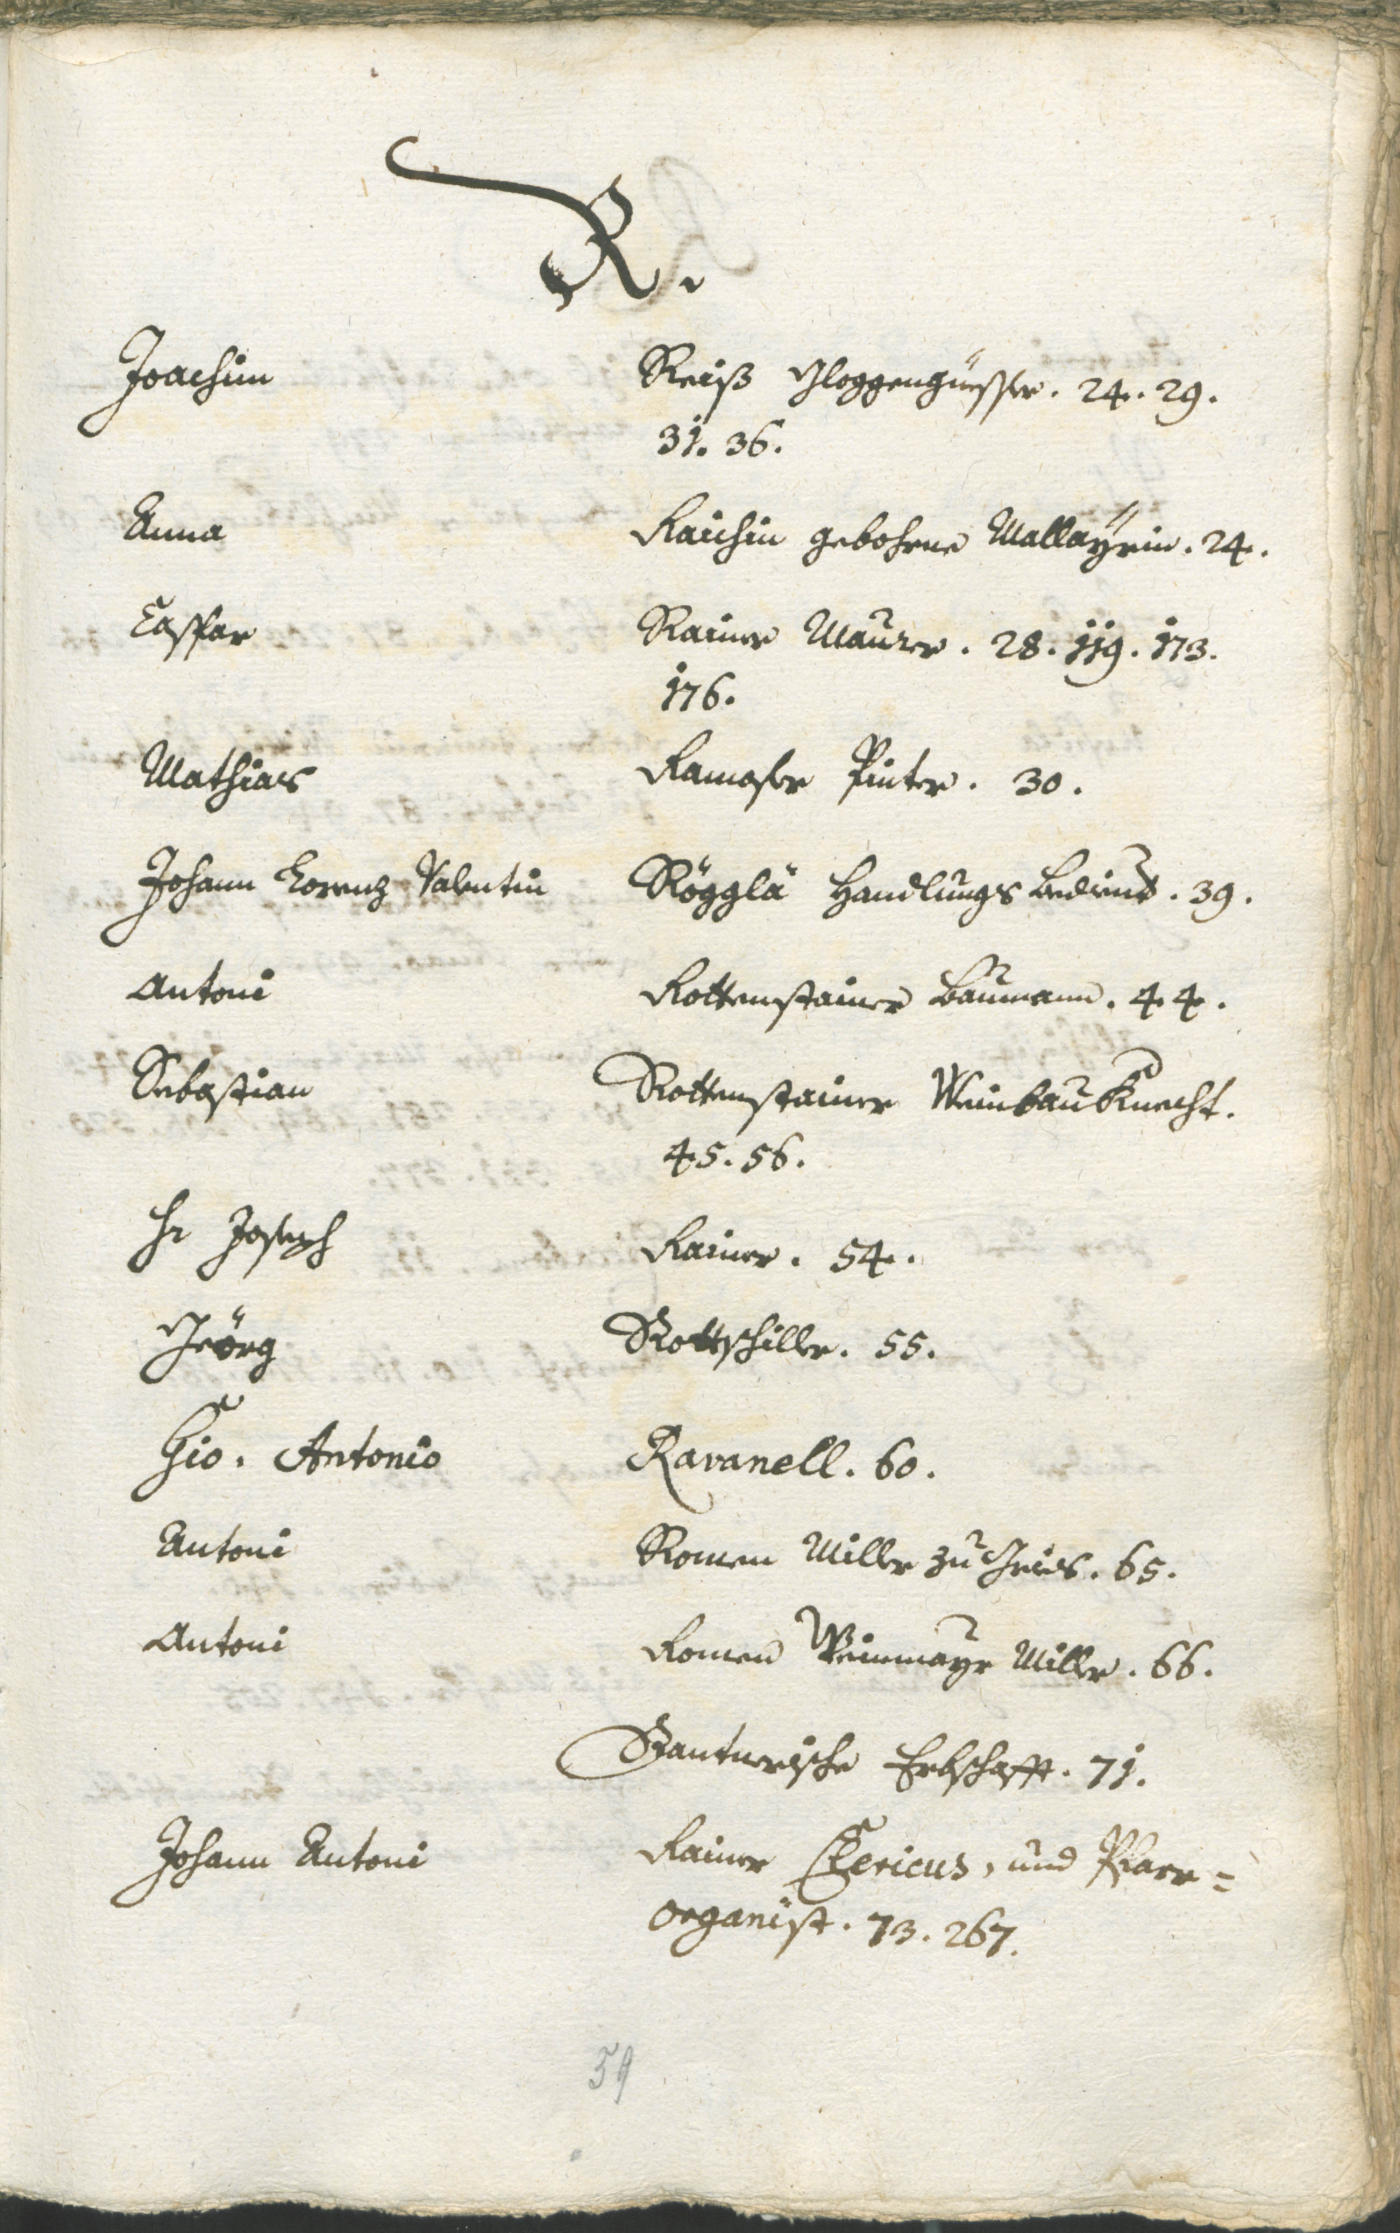 R.
Joachim Reiß Gloggengüesser. 24. 29.
31. 36.
Anna Raichin gebohrne Mallaÿrin. 24.
Caspar Rainer Maurer. 28. 119. 173.
176.
Mathias Ramoser Pinter. 30.
Johann Lorenz Valentin Rögglä Handlungs Bedient. 39.
Antoni Rottenstainer Baumann. 44.
Sebastian Rottenstainer Weinbau Knecht.
45. 56.
Hr Joseph Rainer. 54.
Geörg Rottschiller. 55.
Gio. Antonio Ravanell. 60.
Antoni Romen Miller zu Gries. 65.
Antoni Romen Weinmayr Miller. 66.
Erbschafft. 71.
Johann Antoni Rainer Clericus, und Pfarr=
organist. 73. 267.
59